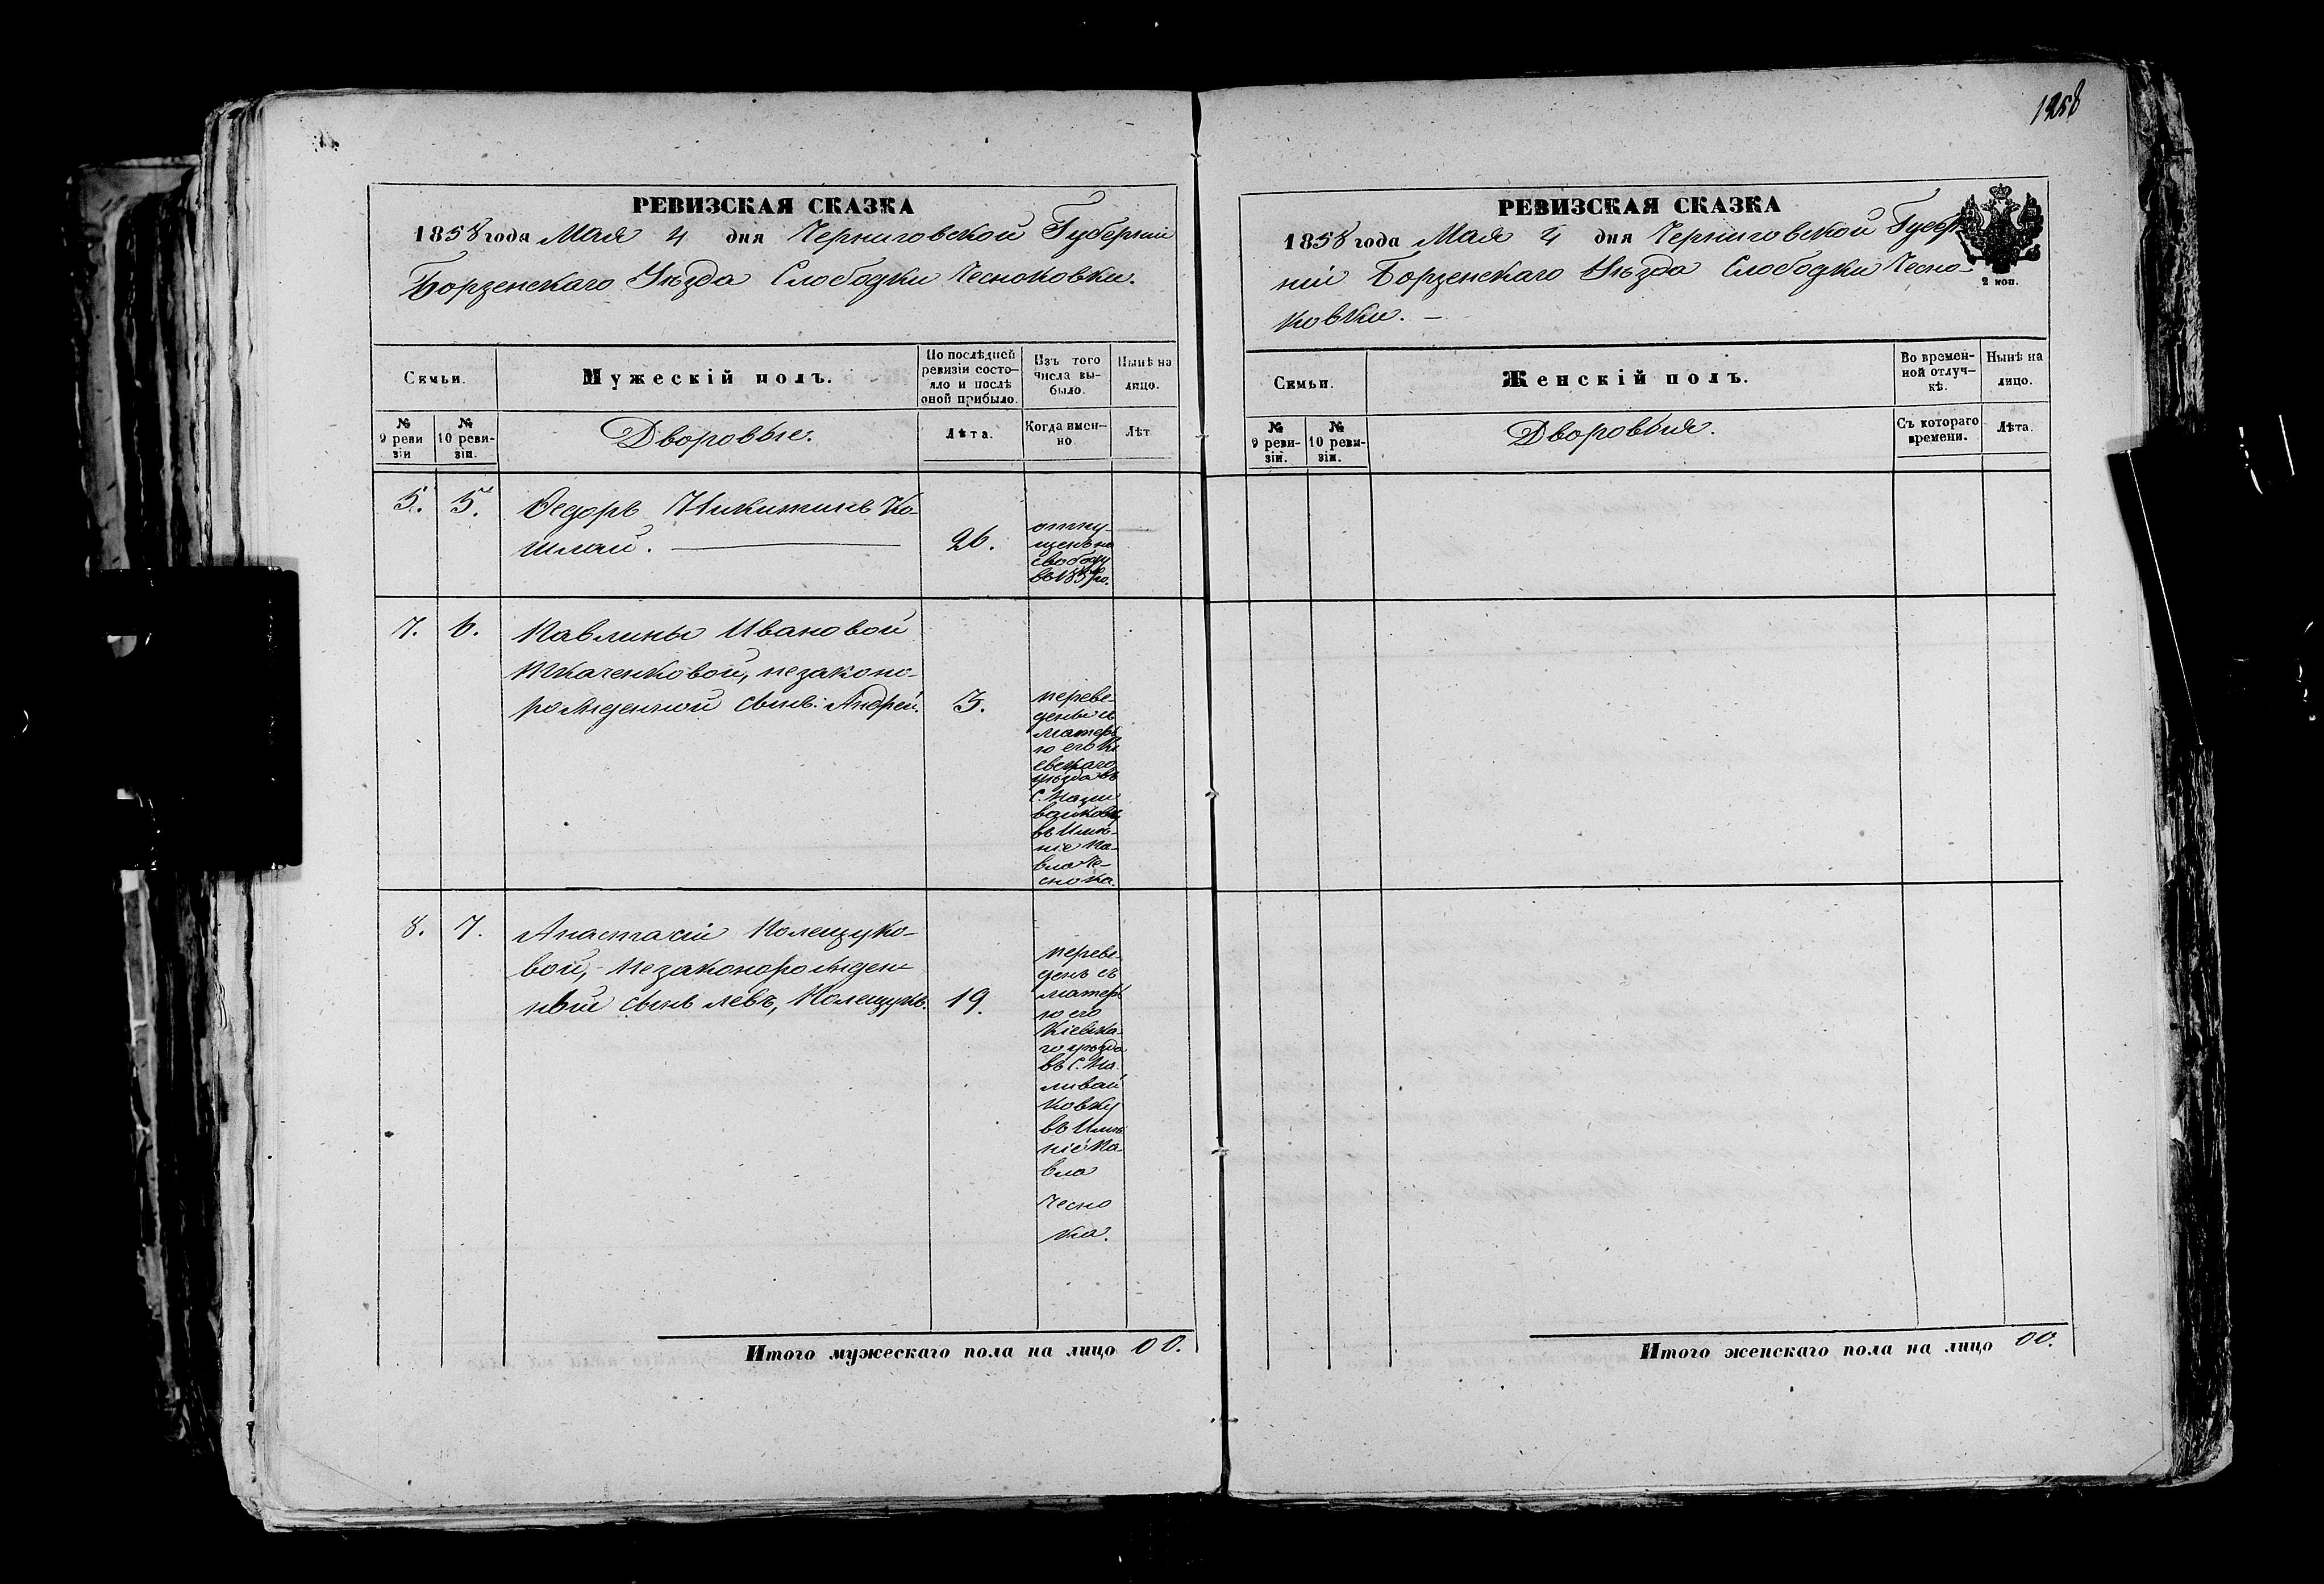 1258
РЕВИЗСКАЯ СКАЗКА
1858 года Мая 4 дня Черниговской Губерніи
Борзенскаго Уѣзда Слободки Чесноковки.
Семьи.
Мужескій полъ.
По послѣдней
ревизіи состо-
яло и послѣ
оной прибыло.
Изъ того
числа вы-
было.
Нынѣ на
лицо.
№
9 реви
зіи
№
10 реви-
зіи.
Дворовые.
Лѣта.
Когда имен-
но
Лѣт
5. 5. Федоръ Никитинъ Ко-
шлай. 26.
отпу-
щенъ на
свободу
въ 1857 го.
7. 6. Павлины Ивановой
Ткаченковой, незаконо-
рожденной сынъ: Андрей. 3.
переве-
дены съ
матерь
ю его Кі
евскаго
уѣзда въ
С.
въ Имѣ-
ніе Па-
вла Че-
снока.
8. 7. Анастасіи Колещуко-
вой, - незаконорожден-
ный сынъ Левъ, Колещукъ. 19.
переве-
денъ съ
матерь
ю его
Кіевска-
го уѣзда
въ С. На
ливай
ковку
въ Имѣ
ніе Па-
вла
Чесно
ка.
Итого мужескаго пола на лицо 00.
РЕВИЗСКАЯ СКАЗКА
1858 года Мая 4 дня Черниговской Губер
ніи Борзенскаго Уѣзда Слободки Чесно-
ковки. -
2 коп.
Семьи.
Женскій полъ.
Во времен-
ной отлуч-
кѣ.
Нынѣ на
лицо.
№
9 реви-
зіи.
№
10 реви-
зіи.
Дворовыя.
Съ котораго
времени.
Лѣта.
Итого женскаго пола на лицо 00.